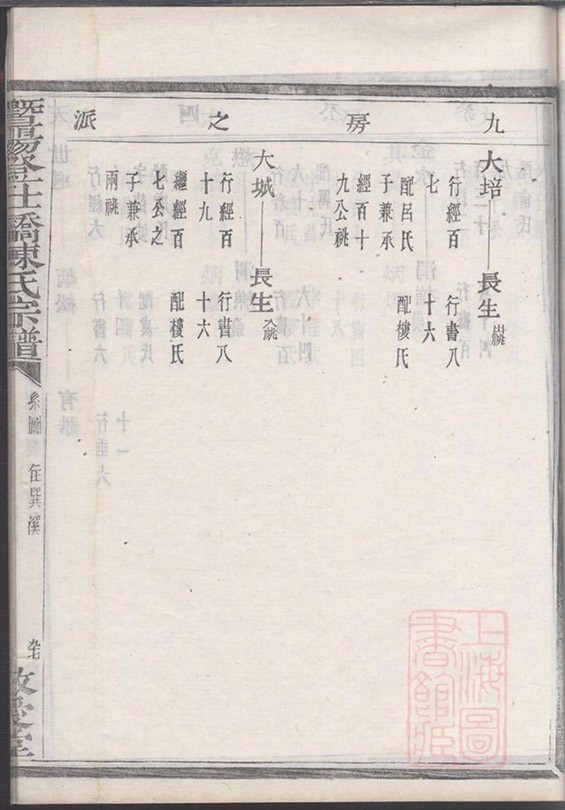 九房之派
大培 長生 出繼
行經百 行書八
七 十六
配呂氏 配樓氏
子兼承
經百十
九公祧
大城 長生 入祧
行經百 行書八
十九 十六
繼經百 配樓氏
七公之
子兼承
兩祧
暨陽 橋陳氏宗譜
系圖 住巽溪
上海圖
書館藏